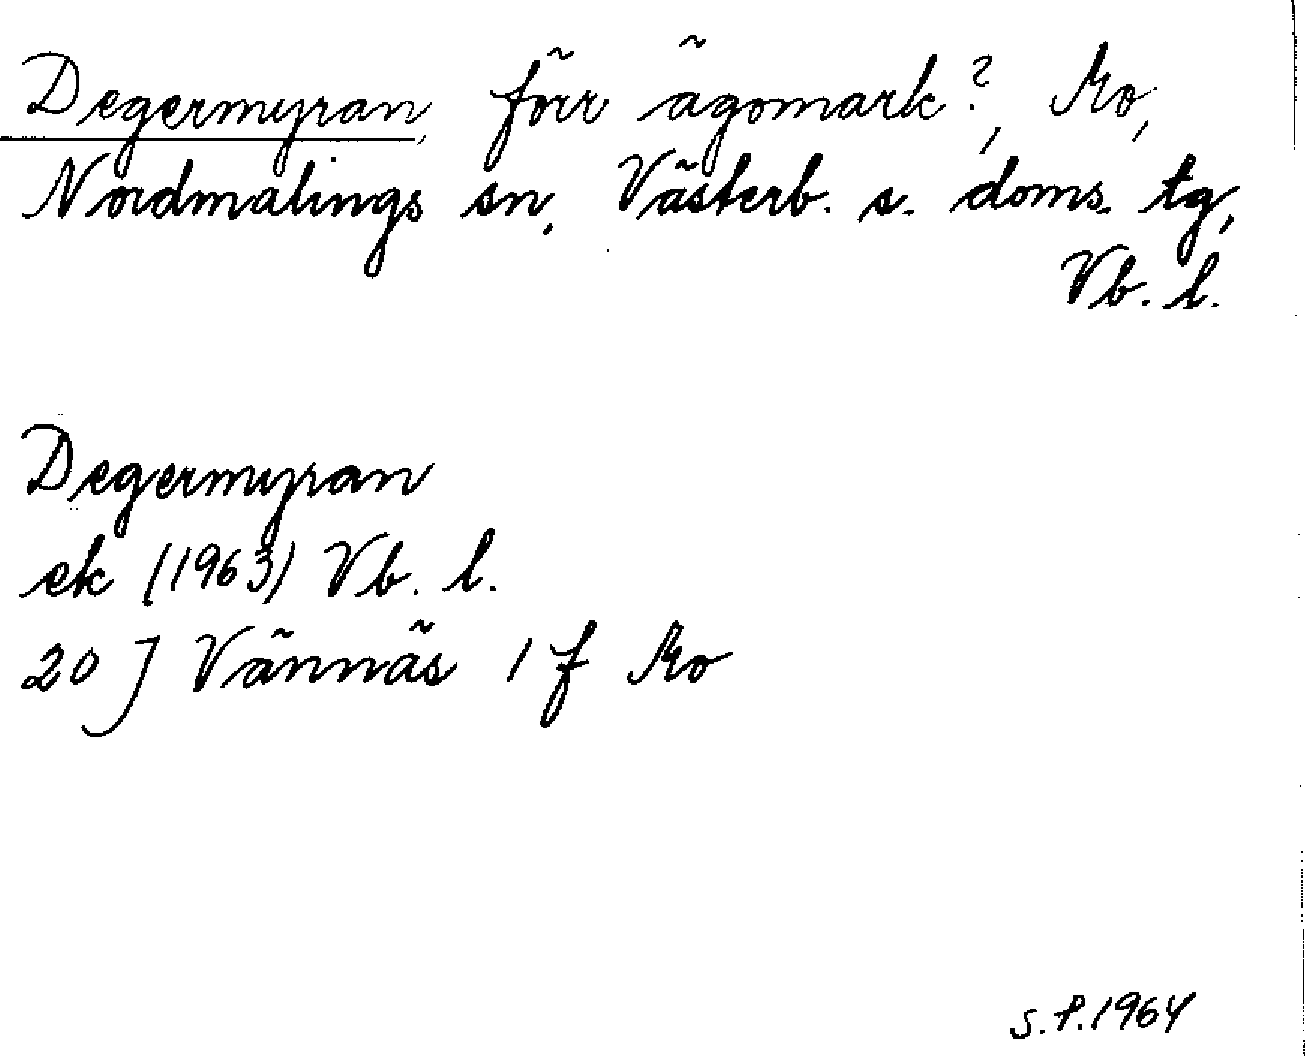 Degermyran, förr ägomark?, Mo,
Nordmalings sn, Västerb. s. doms. tg,
Vb. l.
Degermyran
ek (1963) Vb. l.
20 J Vännäs 1 f Mo
S.P. 1964